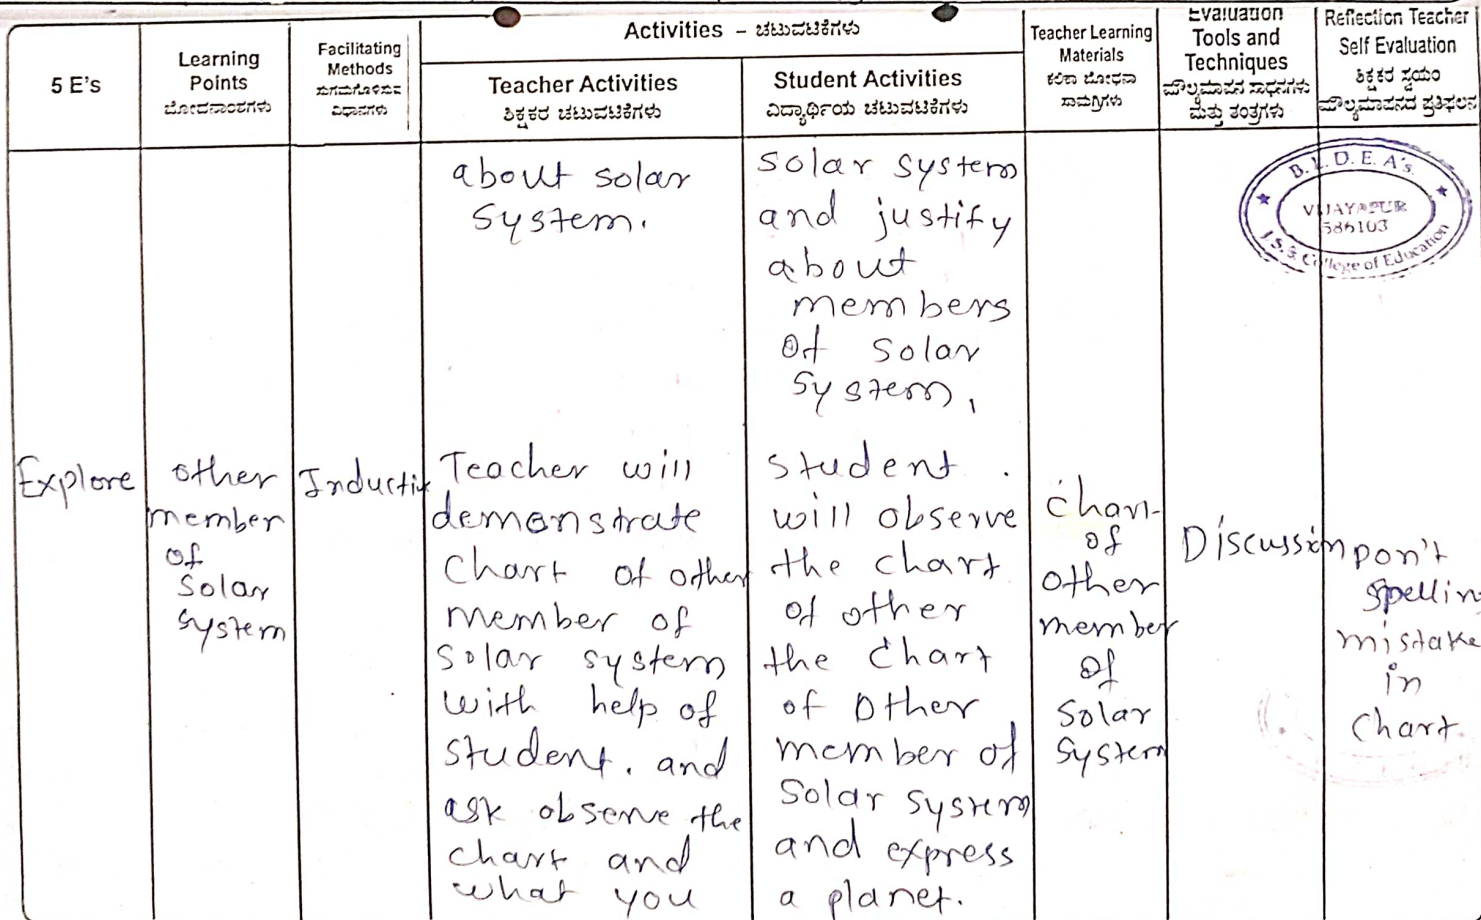 5 E's
Learning
Points
ಬೋಧನಾಂಶಗಳು
Facilitating
Methods
ಸುಗಮಗೊಳಿಸುವ
ವಿಧಾನಗಳು
Activities – ಚಟುವಟಿಕೆಗಳು
Teacher Activities
ಶಿಕ್ಷಕರ ಚಟುವಟಿಕೆಗಳು
Student Activities
ವಿದ್ಯಾರ್ಥಿಯ ಚಟುವಟಿಕೆಗಳು
Teacher Learning
Materials
ಕಲಿಕಾ ಬೋಧನಾ
ಸಾಮಗ್ರಿಗಳು
Evaluation
Tools and
Techniques
ಮೌಲ್ಯಮಾಪನ ಸಾಧನಗಳು
ಮತ್ತು ತಂತ್ರಗಳು
Reflection Teacher
Self Evaluation
ಶಿಕ್ಷಕರ ಸ್ವಯಂ
ಮೌಲ್ಯಮಾಪನದ ಪ್ರತಿಫಲನ
about solar
system.
solar system
and justify
about
members
of solar
system,
B.L.D.E.A's.
VIJAYAPUR
586103
J.S.S. College of Education
Explore
other
member
of
solar
system
Inductiv
Teacher will
demonstrate
chart of other
member of
solar system
with help of
student. and
ask observe the
chart and
what you
student.
will observe
the chart
of other
the chart
of other
member of
solar system
and express
a planet.
chart
of
other
member
of
solar
system
Discussion
Don't
spellin
mistake
in
chart.